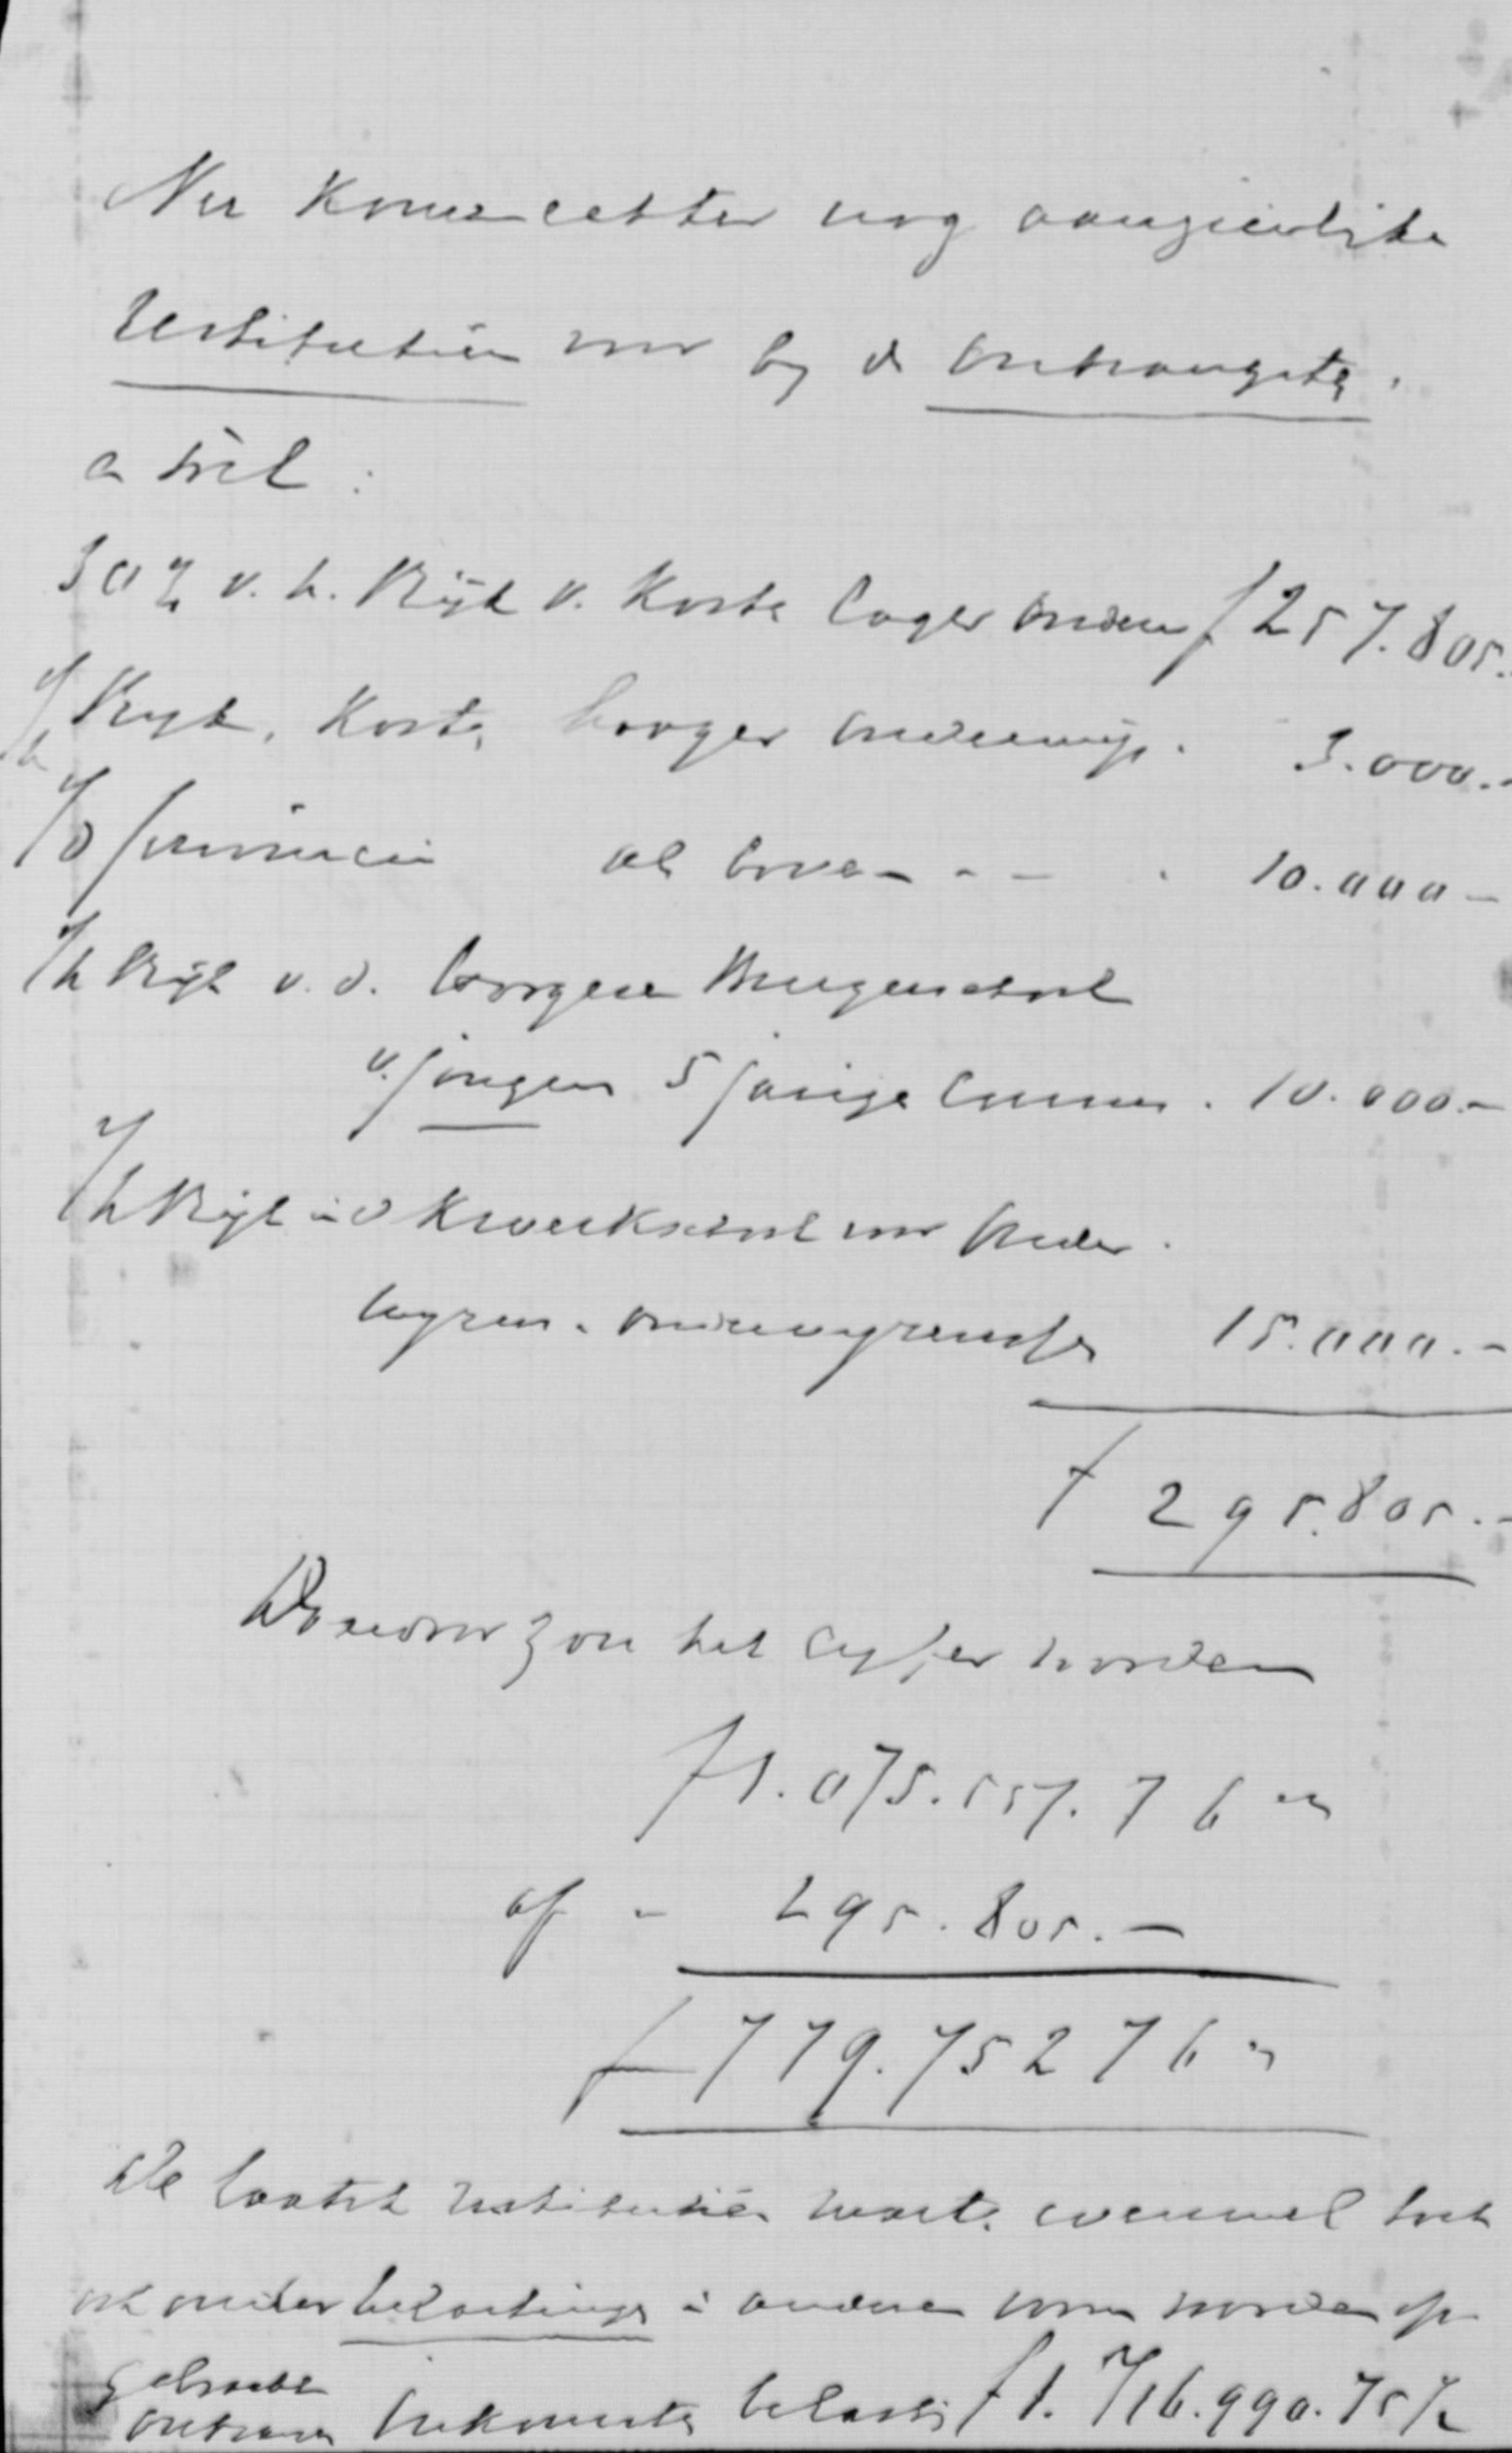 Nu komen echter nog aanzienlijke
restitutiën voor bij de ontvangsten.
als:
30% v. h. Rijk v. Kosten lager onderw f 257.805.
v/h Rijk, Kosten hooger onderwijs. 3.000.-
v/d provincie als boven - - - 10.000 -
v/h Rijk v. d. hoogere Burgerschool
v. jongens 5 jarige cursus. 10.000.-
v/h Rijk i d Kweekschool voor onder
wijzers. onderwijzeressen 15.000.-
f 295.805.-
Daardoor zou het cijfer worden
f 1.075.557.76
af - 295.805.-
f 779.75276
De laatste restitutiën moeten evenwel toch
ook onder belastingen i andere vorm worden op
gebracht
ontvangen Inkomsten belasti f 1.716.990.75